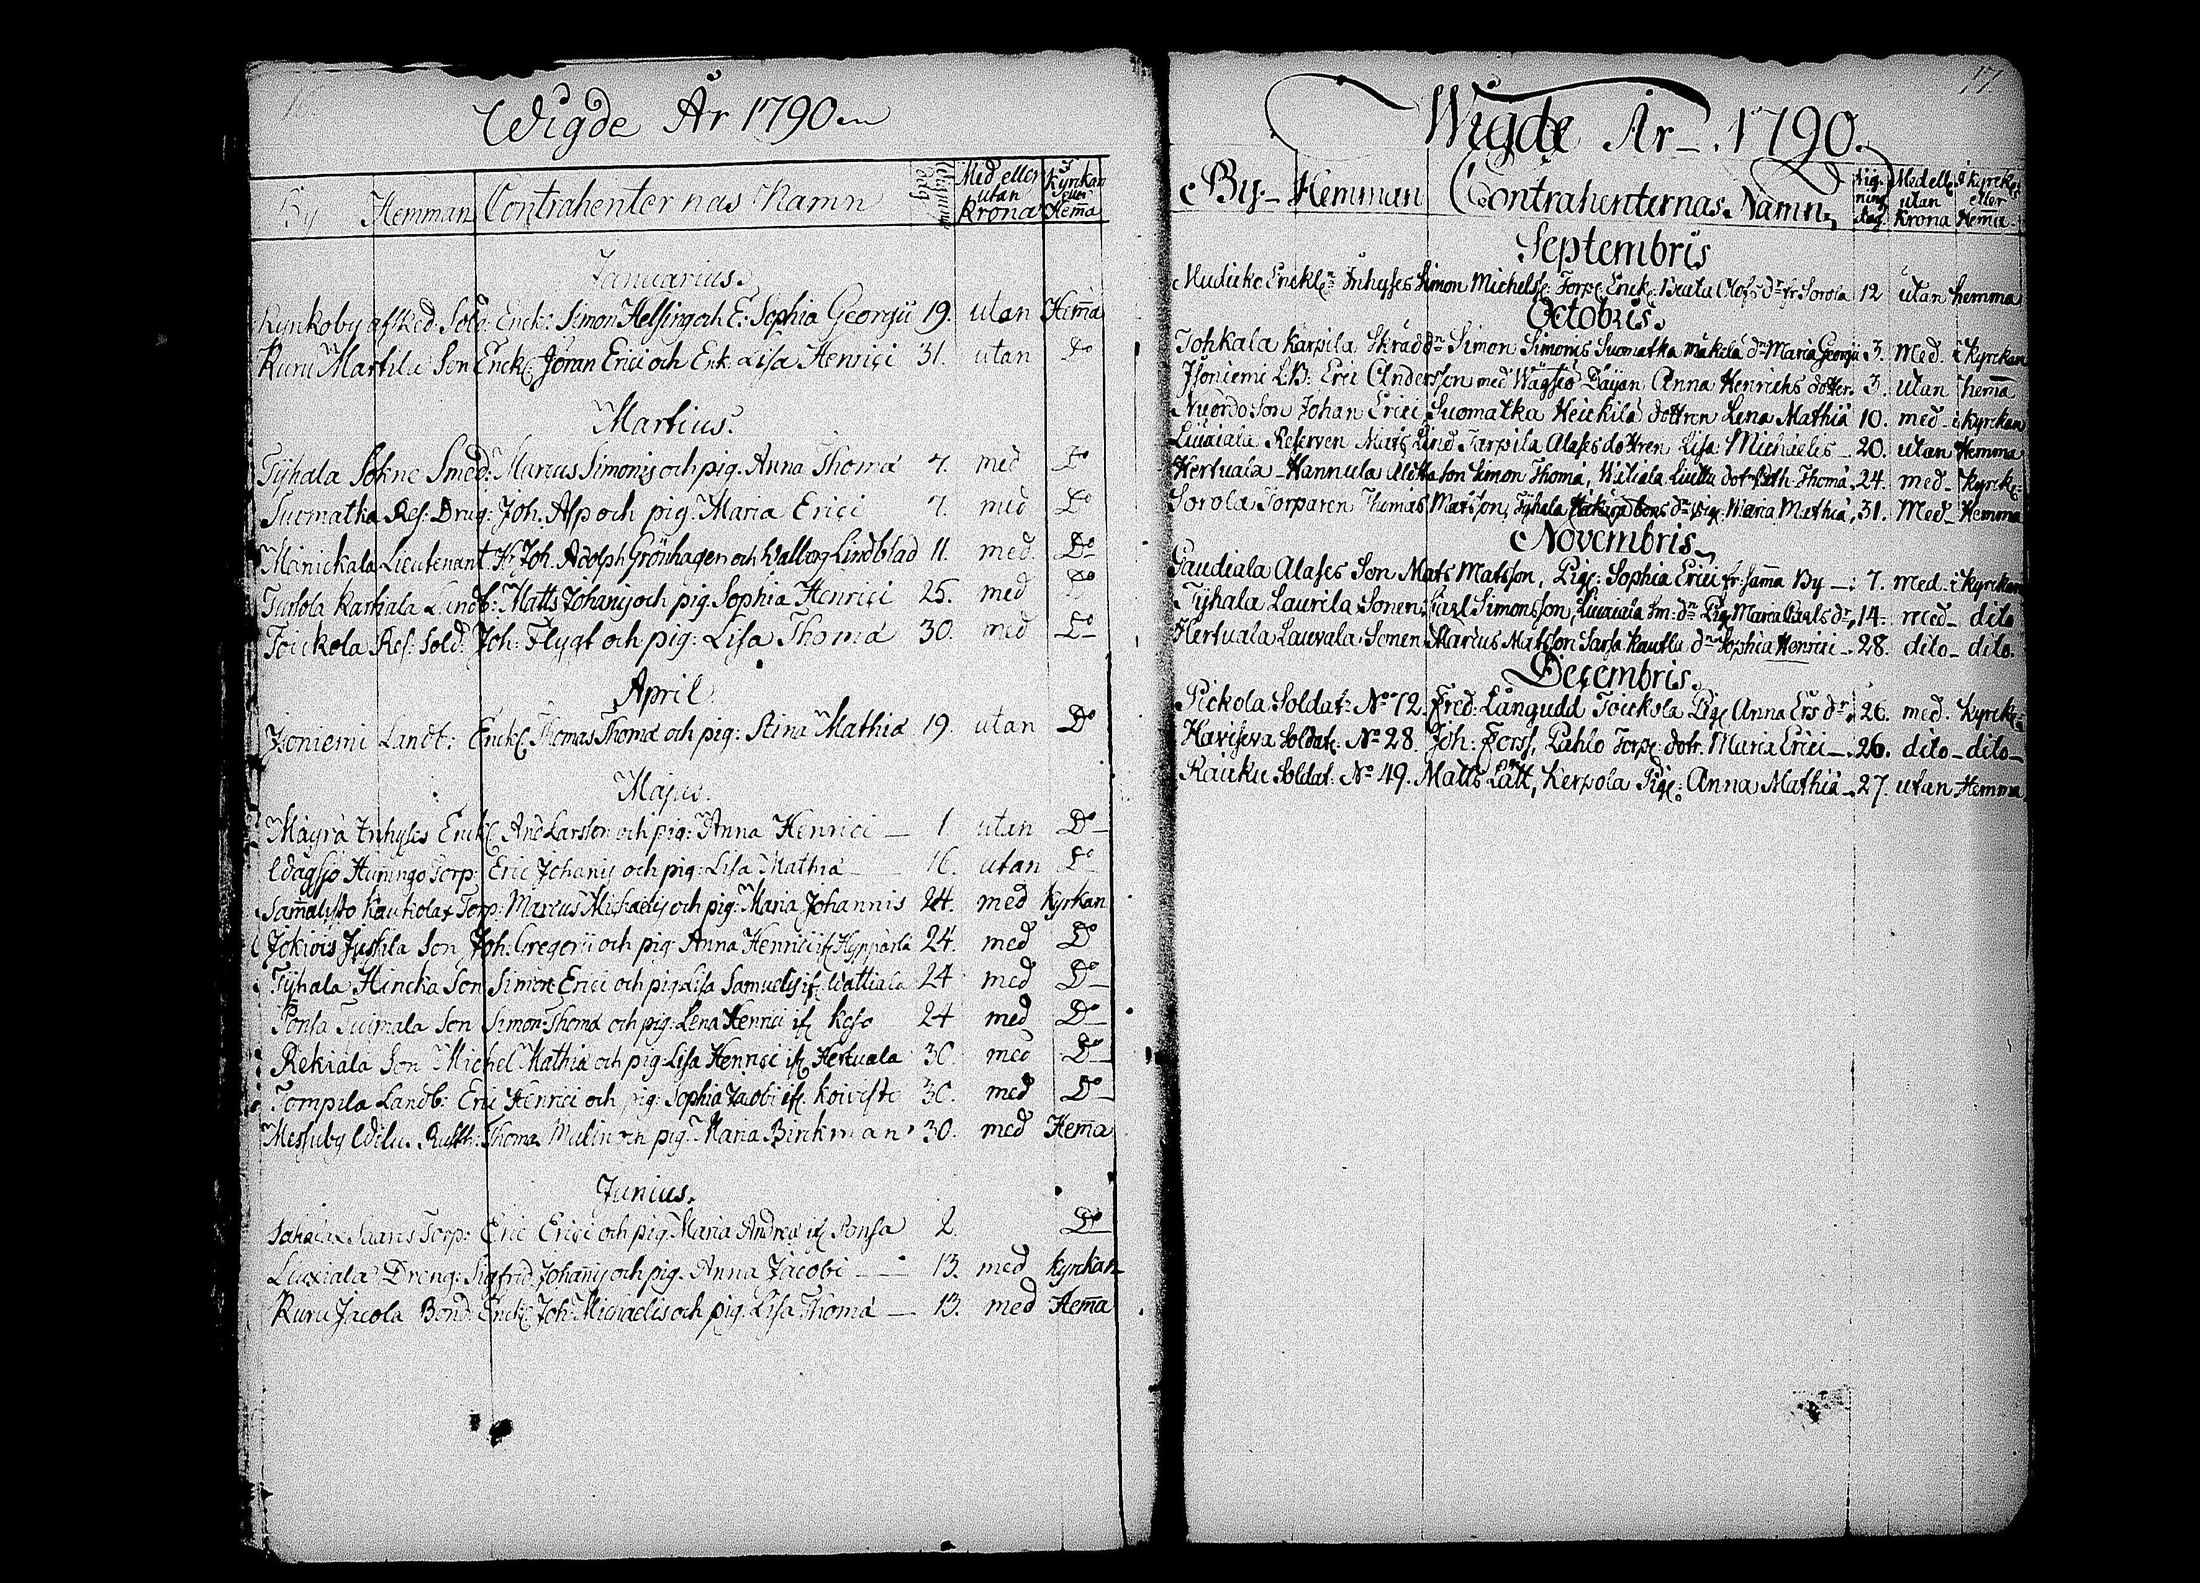 Wigde År 1790
By Hemman Contrahenternas Namn Med eller utan Krona I Kyrckan eller Hem̄a
Januarius.
Kynkoby afsked. Sold: Enck: Simon Helsing och E: Sophia Georgii 19. utan Hem̄a
Kuru Martila Son Enckl. Jöran Erici och Enk. Lisa Henrici 31. utan Do
Martius.
Tÿhala Sokne Smed: Marcus Simonis och pig. Anna Thomæ 7. med Do
Suomatka Res. Drag: Joh. Alp och pig. Maria Erici 7. med Do
Mänickala Lieutenant Hr Joh. Adolph Grönhagen och Walborg Lindblad 11. med. Do
Turtola Karkiala Landb: Matts Johanis och pig. Sophia Henrici 25. med Do
Toickola Res. Sold: Joh: Flygt och pig: Lisa Thomæ 30. med Do
April
Joniemi Landb: Enckl. Thomas Thomæ och pig: Stina Mathiæ 19. utan Do
Majus.
Mäyrä Inhyses Enckl. And Larsson och pig: Anna Henrici 1 utan Do
Wågsjö Huningo Torp: Eric Johanis och pig: Lisa Mathiæ 16. utan Do
Sam̄alisto Kaukola Torp: Marcus Michaelis och pig: Maria Johannis 24. med Kyrkan
Jokiois Jussila Son Joh: Gregorii och pig Anna Henrici ifr Hyppärlä 24. med Do
Tÿhala Hincka Son Simon Erici och pig Lisa Samuelis ifr Wattiala 24 med Do
Ponsa Tuimala Son Simon Thomæ och pig: Lena Henrici ifr Keso 24 med Do
Rekiala Son Michel Mathiæ och pig Lisa Henrici ifr Hertuala 30 med Do
Tompila Landb: Eric Henrici och pig: Sophia Jacobi ifr Koivisto 30. med Do
Messuby Wilu. Rustth: Thomas Malin och pig: Maria Birckman 30. med Hem̄a
Junius.
Sahala Saaris Torp: Eric Erici och pig Maria Andreæ ifr Ponsa 2. Do
Liuxiala Dreng: Sigfrid Johanis och pig. Anna Jacobi 13. med Kyrckan
Kuru Jacola Bond: Enckl. Joh: Michaelis och pig. Lisa Thomæ 13. med Hem̄a
17.
Wigde År 1790.
By Hemman Contrahenternas Namn Wigning dag Med ell. utan Krona I kyrck. eller Hem̄a
Septembris
Enckl. Inhyses Simon Michelss. Torp. Enck. Beata Olofs dr fr Sorola 12 utan hemma
Octobris.
Tohkala Karpila Skräddn Simon Simonis Suomatka Mäkelä dn Maria Georgii 3. Med. i Kyrckan
Isoniemi L.B: Eric Andersson med Wågsiö Anna Henrichs dotter. 3. utan hem̄a
Son Johan Erici Suomatka Heickilä dottren Lena Mathiæ 10. med i kyrckan
Liuxiala Reserven Mats Lind Tarpila Alases dottren Lisa Michaelis 20. utan Hemma
Hertuala Hannula Son Simon Thomæ, Thomæ 24. med Kyrck.
Sorola Torparen Thomas Matsson, Tÿhala dr Pig. Maria Mathiæ, 31. Med Hemma
Novembris
Alases Son Mats Matsson, Pig: Sophia Erici fr: sam̄a By 7. med i Kyrckan
Tÿhala Laurila Sonen Carl Simonsson, Liuxiala Sm: dr Pig. Maria Carls dr, 14. med dito
Hertuala Lauvala Sonen Marcus Matsson dr Sophia Henrici 28. dito dito.
Decembris.
Pickola Soldat: No 72. Fred: Långudd Toickola Pig. Anna Ers dr. 26. med. Kyrck.
Havisewa Soldat. No 28. Joh: Forss, Pahlo Torp. dotr. Maria Erici 26. dito dito
Kauku Soldat: No 49. Matts Lätt, Kerpola Pig: Anna Mathiæ 27. utan Hemma